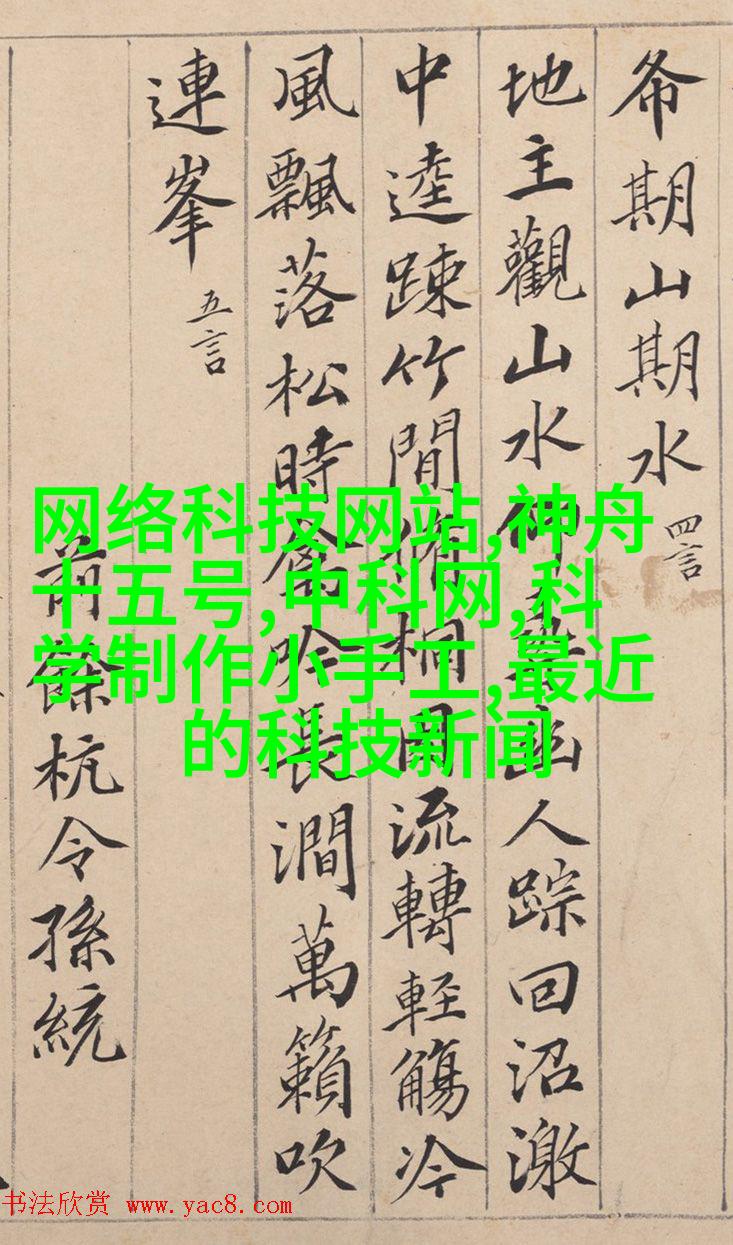 希期山期水 四言
地主觀山水仰尋幽人踪回沼激
中逵踈竹間脩桐因流轉輕觴冷
風飄落松時禽吟長澗萬籟吹
連峯 五言
前餘杭令孫統
网络科技网站,神舟
十五号,中科网,科
学制作小手工,最近
的科技新闻
书法欣赏 www.yac8.com